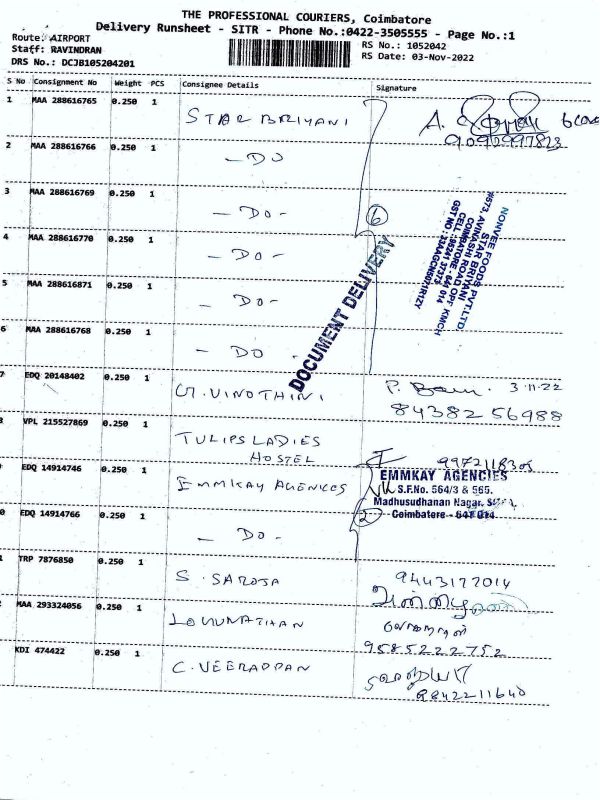 THE PROFESSIONAL COURIERS, Coimbatore
Delivery Runsheet - SITR - Phone No.:0422-3505555 - Page No.:1
Route: AIRPORT
Staff: RAVINDRAN
DRS No.: DCJB105204201
RS No.: 1052042
RS Date: 03-Nov-2022
S No Consignment No Weight PCS Consignee Details Signature
1 MAA 288616765 0.250 1 STAR BRIYANI A.
9092997823
2 MAA 288616766 0.250 1 - DO
3 MAA 288616769 0.250 1 - DO -
6
4 MAA 288616770 0.250 1 - DO -
5 MAA 288616871 0.250 1 - DO -
6 MAA 288616768 0.250 1 - DO
DOCUMENT DELIVERY
NONVEE FOODS PVT.LTD
STAR BRIYANI
#573, AVINASHI ROAD, OPP. KMCH
COIMBATORE - 641 014
CELL : 96241 37373
7 EDQ 20148402 0.250 1 G. VINOTHINI 3.11.22
84382 56988
VPL 215527869 0.250 1 TULIPS LADIES
HOSTEL
9972118305
EDQ 14914746 0.250 1 EMMKAY AGENCES
EMMKAY AGENCIES
S.F.No. 564/3 & 565,
Madhusudhanan Nagar,
Coimbatore - 641 014
2
0 EDQ 14914766 0.250 1 - DO -
TRP 7876850 0.250 1 S. SAROJA 9443177014
MAA 293324056 0.250 1 LOGUNATHAN
9585222752
KDI 474422 0.250 1 C. VEERAPPAN
9842211640